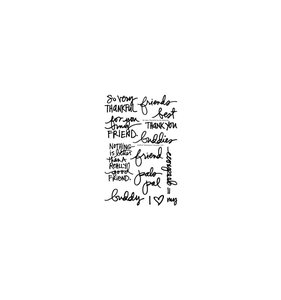 so very
THANKFUL
for you
my
FRIEND.
NOTHING
is better
than a
REALLY
good
FRIEND.
buddy
friends
best
THANK YOU
buddies
friend
pals
pal
I ♡ my